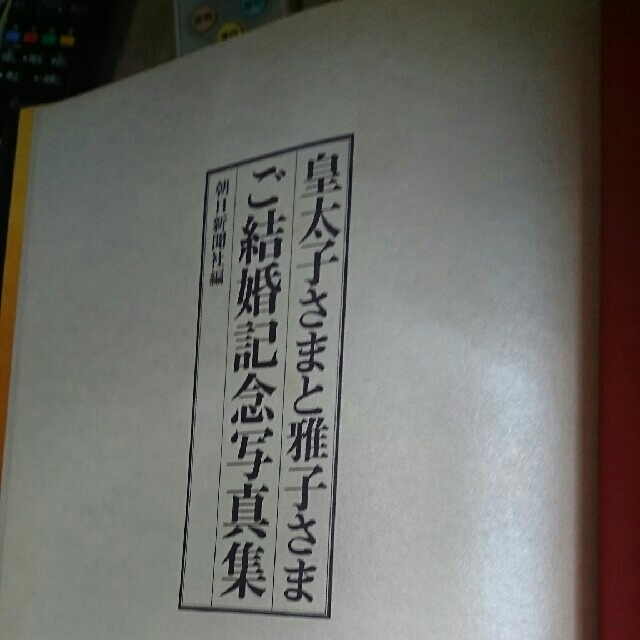 皇太子さまと雅子さま
ご結婚記念写真集
朝日新聞社編